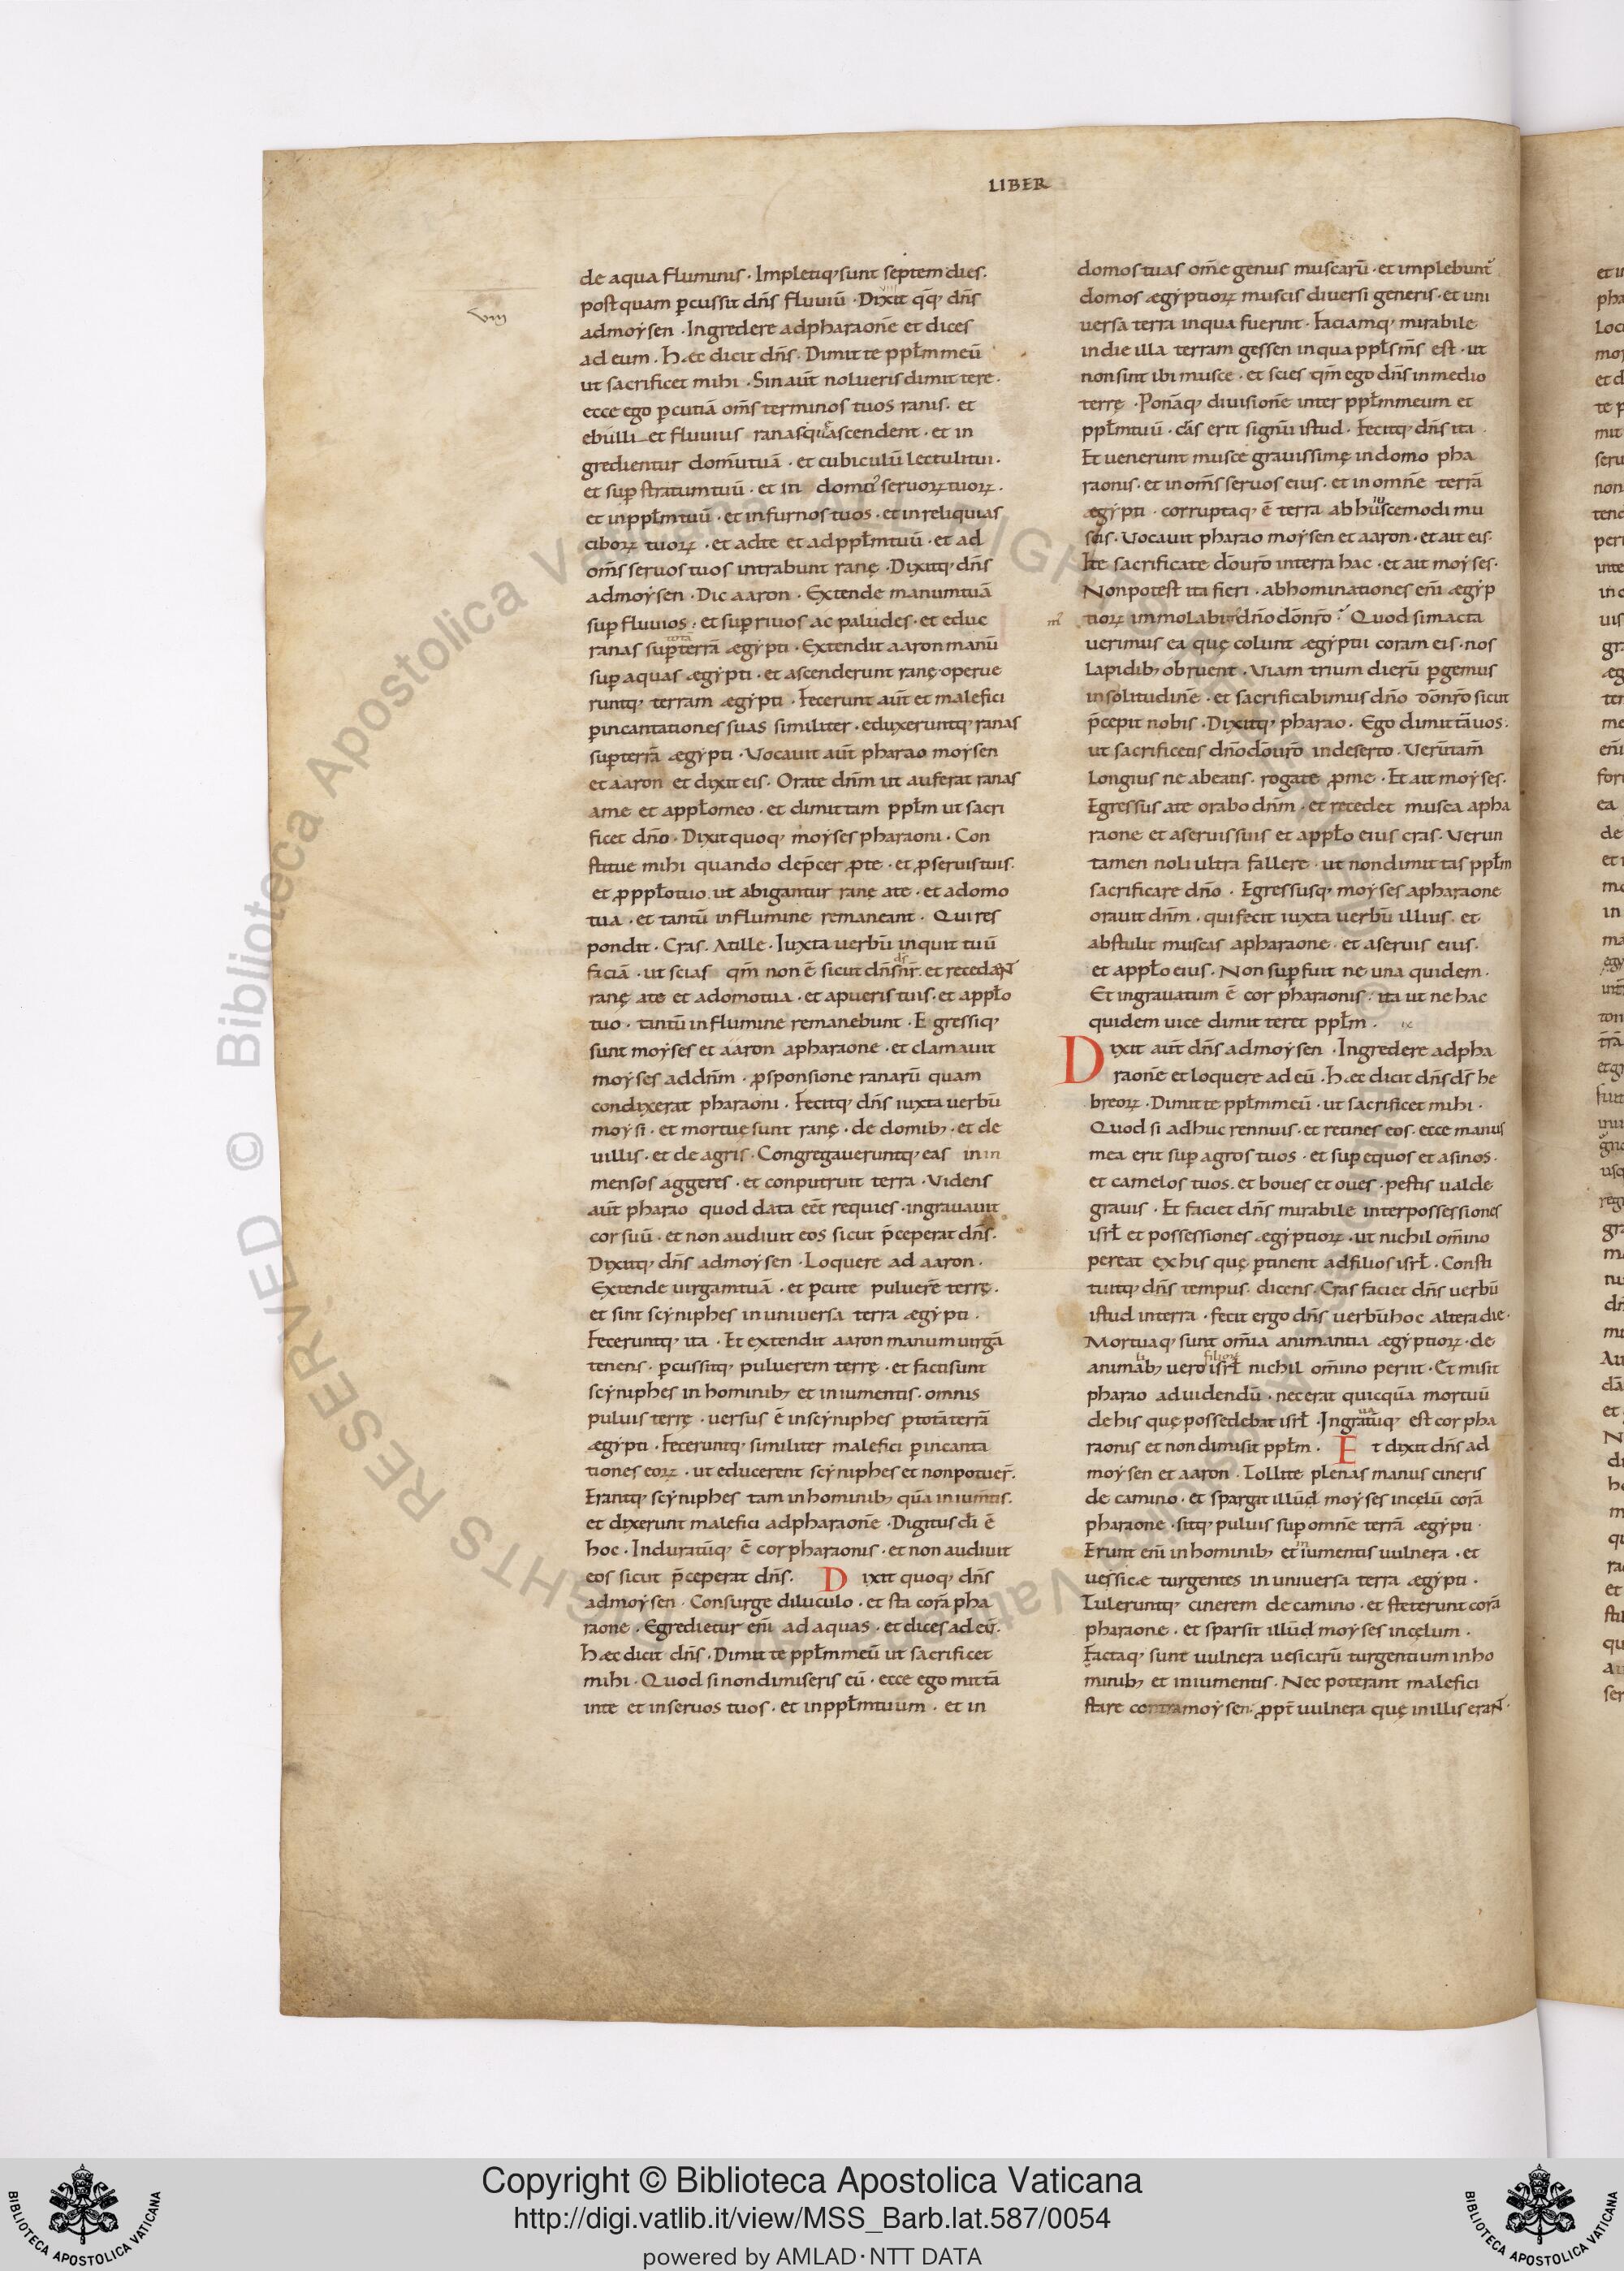 LIBER
viii
de aqua fluminis · Impletiq; sunt septem dies ·
postquam p̄cussit dn̄s fluuiū · Dixit qq̄ dn̄s
admoẏsen · Ingredere adpharaonē et dices
ad eum · Hęc dicit dn̄s · Dimitte ppl̄m meū
ut sacrificet mihi · Sin aūt nolueris dimittere ·
ecce ego p̄cutiā om̄s terminos tuos ranis · et
ebulliet fluuius ranas quę ascendent · et in
gredientur domū tuā · et cubiculū lectuli tui ·
et sup̄ stratum tuū · et in domū seruoꝝ tuoꝝ ·
et in ppl̄m tuū · et in furnos tuos · et in reliquias
ciboꝝ tuoꝝ · et ad te et ad ppl̄m tuū · et ad
om̄s seruos tuos intrabunt ranę · Dixitq; dn̄s
admoẏsen · Dic aaron · Extende manum tuā
sup̄ fluuios · et sup̄ riuos ac paludes · et educ
ranas sup̄ totā terrā ægẏpti · Extendit aaron manū
sup̄ aquas ægẏpti · et ascenderunt ranę · operue
runtq; terram ægẏpti · Fecerunt aūt et malefici
p̄ incantationes suas similiter · eduxeruntq; ranas
sup̄ terrā ægẏpti · Vocauit aūt pharao moẏsen
et aaron et dixit eis · Orate dn̄m ut auferat ranas
a me et a ppl̄o meo · et dimittam ppl̄m ut sacri
ficet dn̄o · Dixit quoq; moẏses pharaoni · Con
stitue mihi quando dep̄cer ꝓ te · et ꝓ seruis tuis ·
et ꝓ ppl̄o tuo · ut abigantur ranę a te · et a domo
tua · et tantū in flumine remaneant · Qui res
pondit · Cras · At ille · Iuxta uerbū inquit tuū
faciā · ut scias qm̄ non ē sicut dn̄s ds̄ nr̄ · et recedaNt
ranę a te et a domo tua · et a pueris tuis · et a ppl̄o
tuo · tantū in flumine remanebunt · Egressiq;
sunt moẏses et aaron a pharaone · et clamauit
moẏses ad dn̄m · ꝓ sponsione ranarū quam
condixerat pharaoni · Fecitq; dn̄s iuxta uerbū
moẏsi · et mortuę sunt ranę · de domib; · et de
uillis · et de agris · Congregaueruntq; eas in in
mensos aggeres · et conputruit terra · Videns
aūt pharao quod data eēt requies · ingrauauit
cor suū · et non audiuit eos sicut p̄ceperat dn̄s ·
Dixitq; dn̄s ad moẏsen · Loquere ad aaron ·
Extende uirgam tuā · et p̄cute puluerē terrę ·
et sint scẏniphes in uniuersa terra ægẏpti ·
Feceruntq; ita · Et extendit aaron manum uirgā
tenens · p̄cussitq; puluerem terrę · et facti sunt
scẏniphes in hominib; et in iumentis · omnis
puluis terrę · uersus ē in scẏniphes p̄ totā terrā
ægẏpti · Feceruntq; similiter malefici p̄ incanta
tiones eoꝝ · ut educerent scẏniphes et non potuer̄ ·
Erantq; scẏniphes tam in hominib; quā in ium̄tis ·
et dixerunt malefici ad pharaonē · Digitus dī ē
hoc · Induratūq; ē cor pharaonis · et non audiuit
eos sicut p̄ceperat dn̄s · Dixit quoq; dn̄s
ad moẏsen · Consurge diluculo · et sta corā pha
raone · Egredietur enī ad aquas · et dices ad eū ·
Hęc dicit dn̄s · Dimitte ppl̄m meū ut sacrificet
mihi · Quod si non dimiseris eū · ecce ego mittā
in te et in seruos tuos · et in ppl̄m tuum · et in
domos tuas om̄e genus muscarū · et implebunt᷒
domos ægẏptioꝝ muscis diuersi generis · et uni
uersa terra in qua fuerint · Faciamq; mirabile
in die illa terram gessen in qua ppl̄s m̄s est · ut
non sint ibi musce · et scies qm̄ ego dn̄s in medio
terrę · Ponāq; diuisionē inter ppl̄m meum et
ppl̄m tuū · cās erit signū istud · Fecitq; dn̄s ita ·
Et uenerunt musce grauissimę in domo pha
raonis · et in om̄s seruos eius · et in omnē terrā
ægẏpti · corruptaq; ē terra ab huiuscemodi mu
scis · Vocauit pharao moẏsen et aaron · et ait eis ·
Ite sacrificate dō uro in terra hac · et ait moẏses ·
Non potest ita fieri · abhominationes enī ægẏp
tioꝝ immolabim᷒ dn̄o dō nr̄o · Quod si macta
uerimus ea quę colunt ægẏptii coram eis · nos
lapidib; obruent · Viam trium dierū p̄gemus
in solitudinē · et sacrificabimus dn̄o dō nr̄o sicut
p̄cepit nobis · Dixitq; pharao · Ego dimittā uos ·
ut sacrificetis dn̄o dō uro in deserto · Verūtam̄
longius ne abeatis · rogate ꝓ me · Et ait moẏses ·
Egressus a te orabo dn̄m · et recedet musca a pha
raone et a seruis suis et a ppl̄o eius cras · Verun
tamen noli ultra fallere · ut non dimittas ppl̄m
sacrificare dn̄o · Egressusq; moẏses a pharaone
orauit dn̄m · qui fecit iuxta uerbū illius · et
abstulit muscas a pharaone · et a seruis eius ·
et a ppl̄o eius · Non sup̄fuit ne una quidem ·
Et ingrauatum ē cor pharaonis · ita ut ne hac
quidem uice dimitteret ppl̄m · ix
Dixit aūt dn̄s ad moẏsen · Ingredere ad pha
raonē et loquere ad eū · Hęc dicit dn̄s ds̄ he
breoꝝ · Dimitte ppl̄m meū · ut sacrificet mihi ·
Quod si adhuc rennuis · et retines eos · ecce manus
mea erit sup̄ agros tuos · et sup̄ equos et asinos ·
et camelos tuos · et boues et oues · pestis ualde
grauis · Et faciet dn̄s mirabile inter possessiones
isrl̄ et possessiones ægẏptioꝝ · ut nichil om̄ino
pereat ex his quę p̄tinent ad filios isrl̄ · Consti
tuitq; dn̄s tempus · dicens · Cras faciet dn̄s uerbū
istud in terra · fecit ergo dn̄s uerbū hoc altera die ·
Mortuaq; sunt om̄ia animantia ægẏptioꝝ · de
animalib; uero filioꝝ isrl̄ nichil om̄ino periit · Et misit
pharao ad uidendū · nec erat quicquā mortuū
de his quę possedebat isrl̄ · Ingrauatūq; est cor pha
raonis et non dimisit ppl̄m · Et dixit dn̄s ad
moẏsen et aaron · Tollite plenas manus cineris
de camino · et spargat illūd moẏses in cęlū corā
pharaone · sitq; puluis sup̄ omnē terrā ægẏpti ·
Erunt enī in hominib; et in iumentis uulnera · et
uessicæ turgentes in uniuersa terra ægẏpti ·
Tuleruntq; cinerem de camino · et steterunt corā
pharaone · et sparsit illūd moẏses in cęlum ·
Factaq; sunt uulnera uesicarū turgentium in ho
minib; et in iumentis · Nec poterant malefici
stare contra moẏsen · ꝓpt̄ uulnera quę in illis eraNt ·
Copyright © Biblioteca Apostolica Vaticana
http://digi.vatlib.it/view/MSS_Barb.lat.587/0054
powered by AMLAD·NTT DATA
BIBLIOTECA APOSTOLICA VATICANA
BIBLIOTECA APOSTOLICA VATICANA